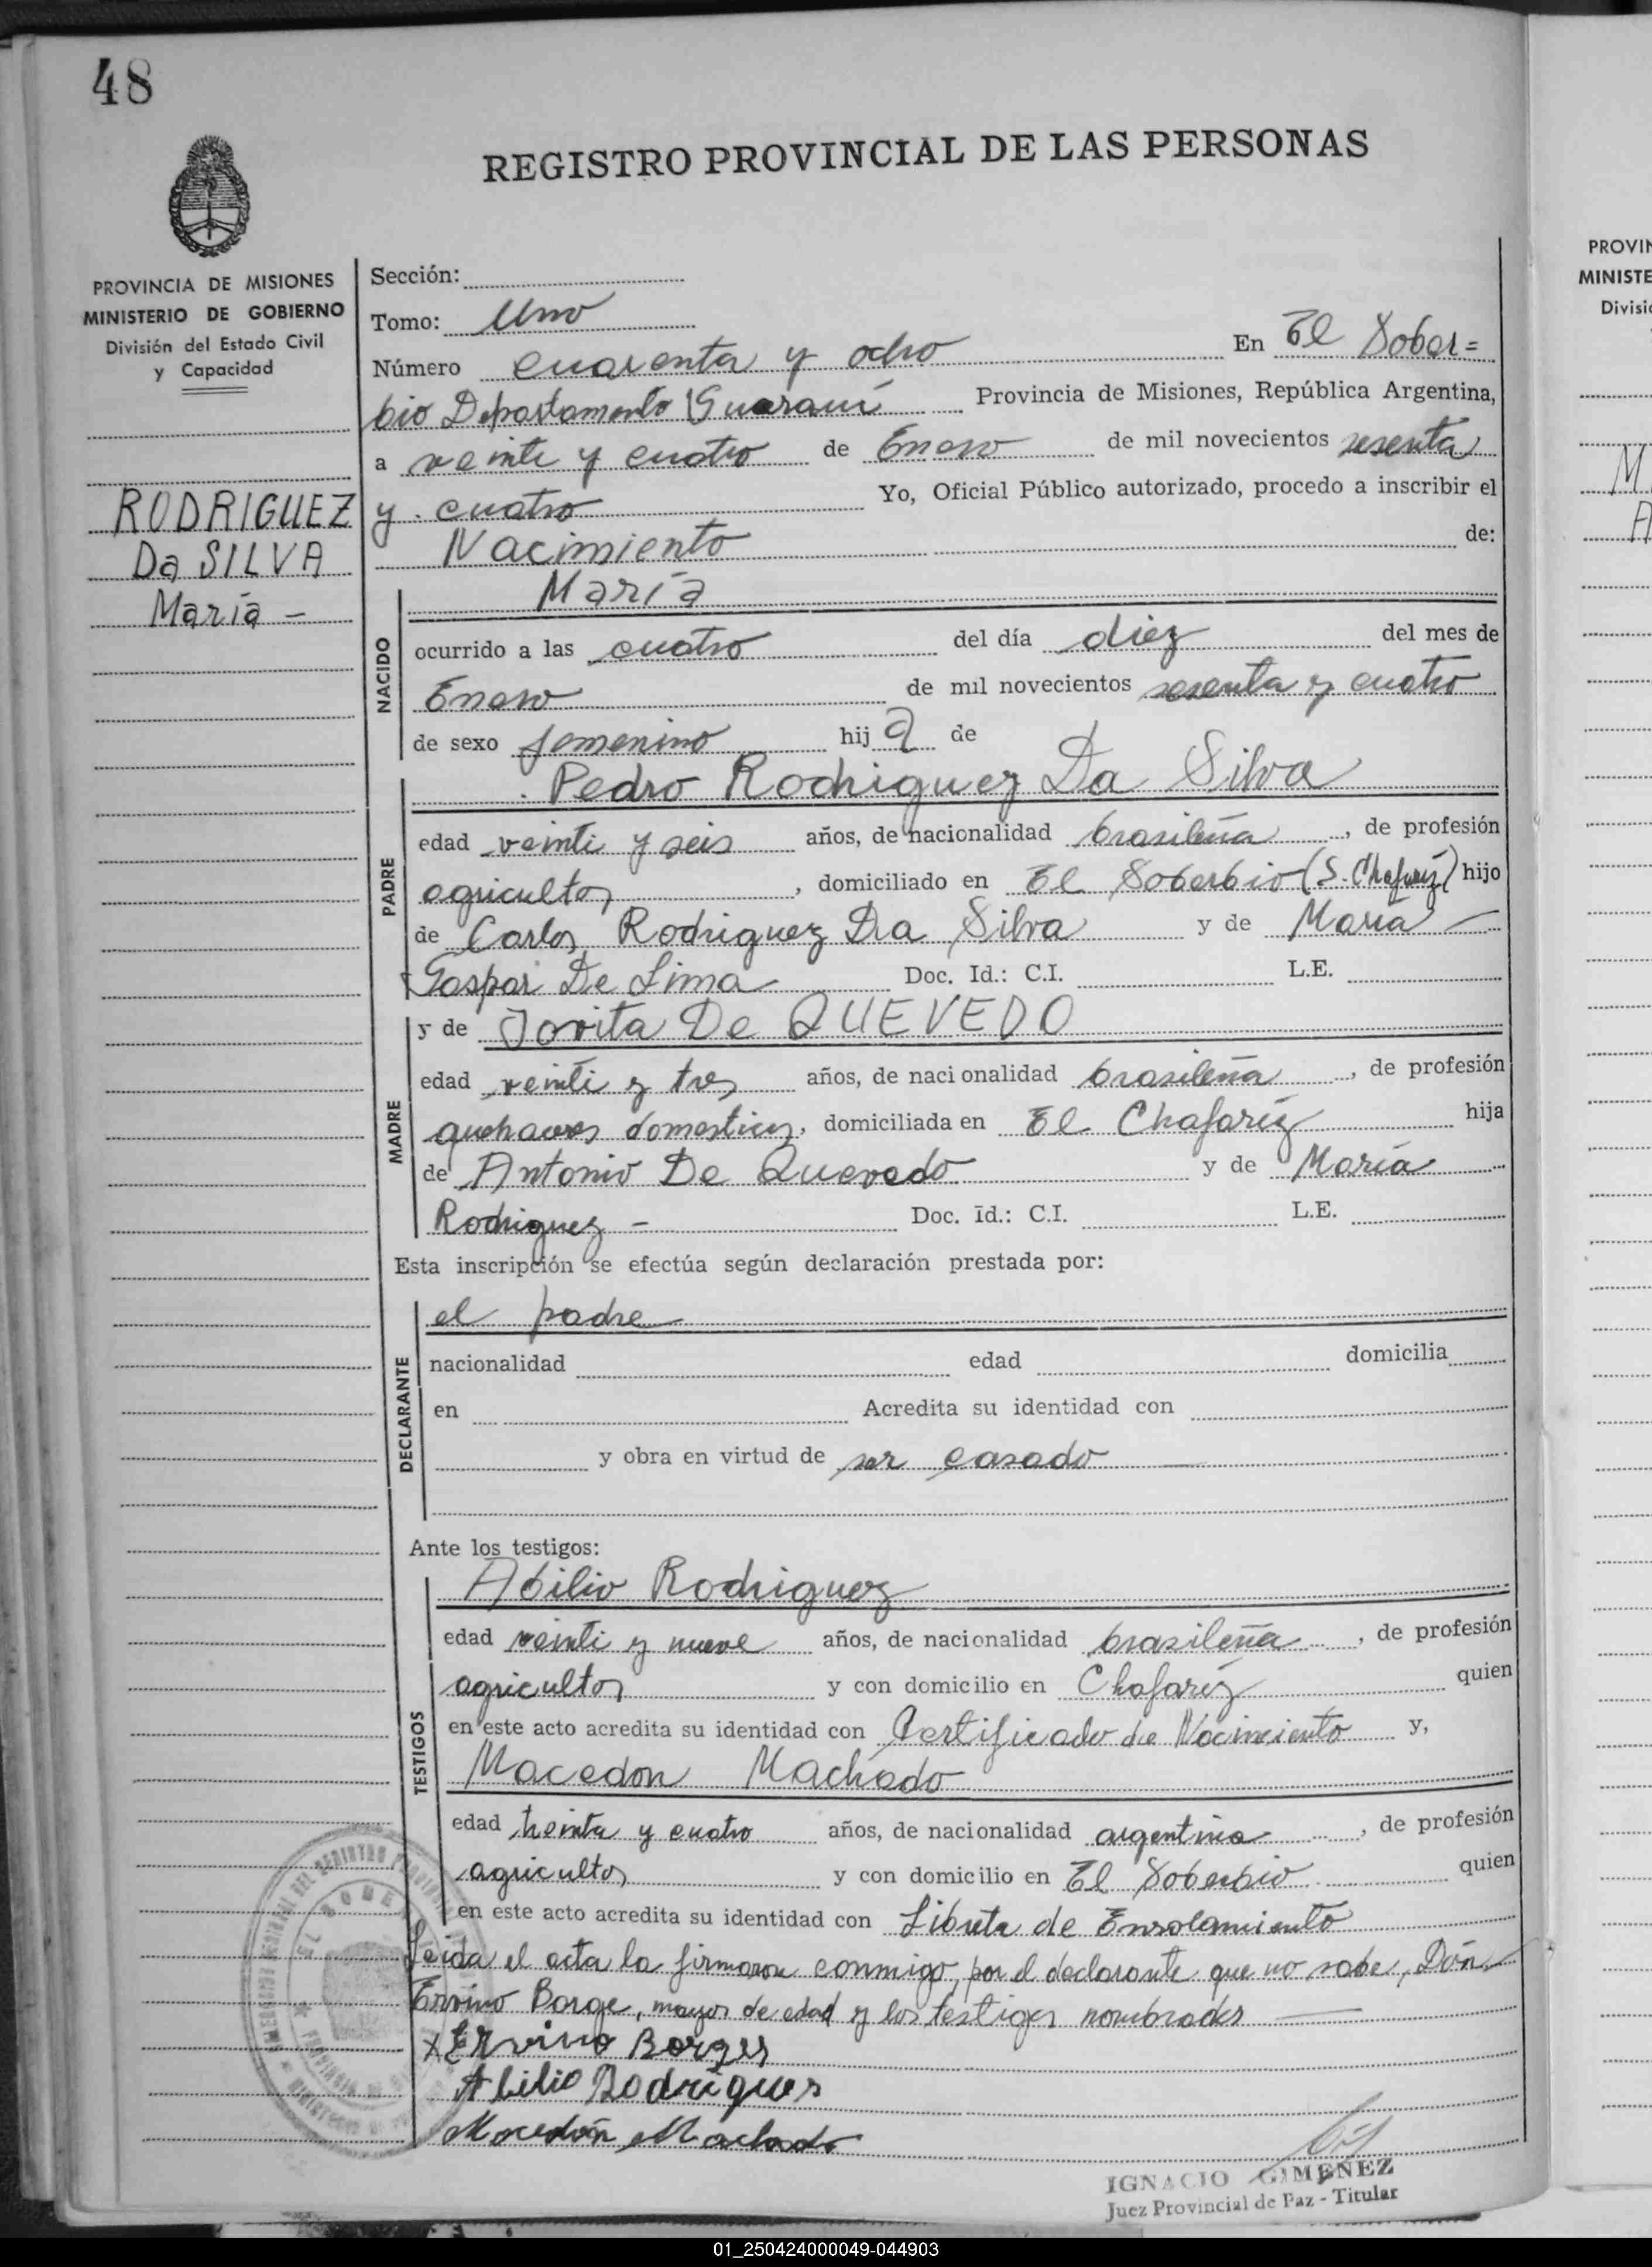 48
REGISTRO PROVINCIAL DE LAS PERSONAS
PROVINCIA DE MISIONES
MINISTERIO DE GOBIERNO
División del Estado Civil
y Capacidad
RODRIGUEZ
Da SILVA
María -
Sección:
Tomo: Uno
Número cuarenta y ocho En El Sober=
bio Departamento Guaraní Provincia de Misiones, República Argentina,
a veinte y cuatro de Enero de mil novecientos sesenta
y cuatro Yo, Oficial Público autorizado, procedo a inscribir el
Nacimiento de:
María
NACIDO
ocurrido a las cuatro del día diez del mes de
Enero de mil novecientos sesenta y cuatro
de sexo femenino hija de
Pedro Rodriguez Da Silva
PADRE
edad veinti y seis años, de nacionalidad brasileña, de profesión
agricultor, domiciliado en El Soberbio (S. Chafariz) hijo
de Carlos Rodriguez Da Silva y de María
Gaspar De Lima Doc. Id.: C.I. L.E.
y de Jovita De QUEVEDO
MADRE
edad veinti y tres años, de nacionalidad brasileña, de profesión
quehaceres domesticos, domiciliada en El Chafaríz hija
de Antonio De Quevedo y de María
Rodriguez - Doc. Id.: C.I. L.E.
Esta inscripción se efectúa según declaración prestada por:
el padre
DECLARANTE
nacionalidad edad domicilia
en Acredita su identidad con
y obra en virtud de ser casado
Ante los testigos:
Abilio Rodriguez
TESTIGOS
edad veinti y nueve años, de nacionalidad brasileña, de profesión
agricultor y con domicilio en Chafaríz quien
en este acto acredita su identidad con Certificado de Nacimiento y,
Macedon Machado
edad treinta y cuatro años, de nacionalidad argentina, de profesión
agricultor y con domicilio en El Soberbio quien
en este acto acredita su identidad con Libreta de Enrolamiento
Leida el acta la firmaron conmigo, por el declarante que no sabe, Dón
Ervino Borge, mayor de edad y los testigos nombrados
x Ervino Borges
Abilio Rodrigues
Macedón Machado
IGNACIO GIMENEZ
Juez Provincial de Paz - Titular
PROVIN
MINISTE
Divisi
01_250424000049-044903